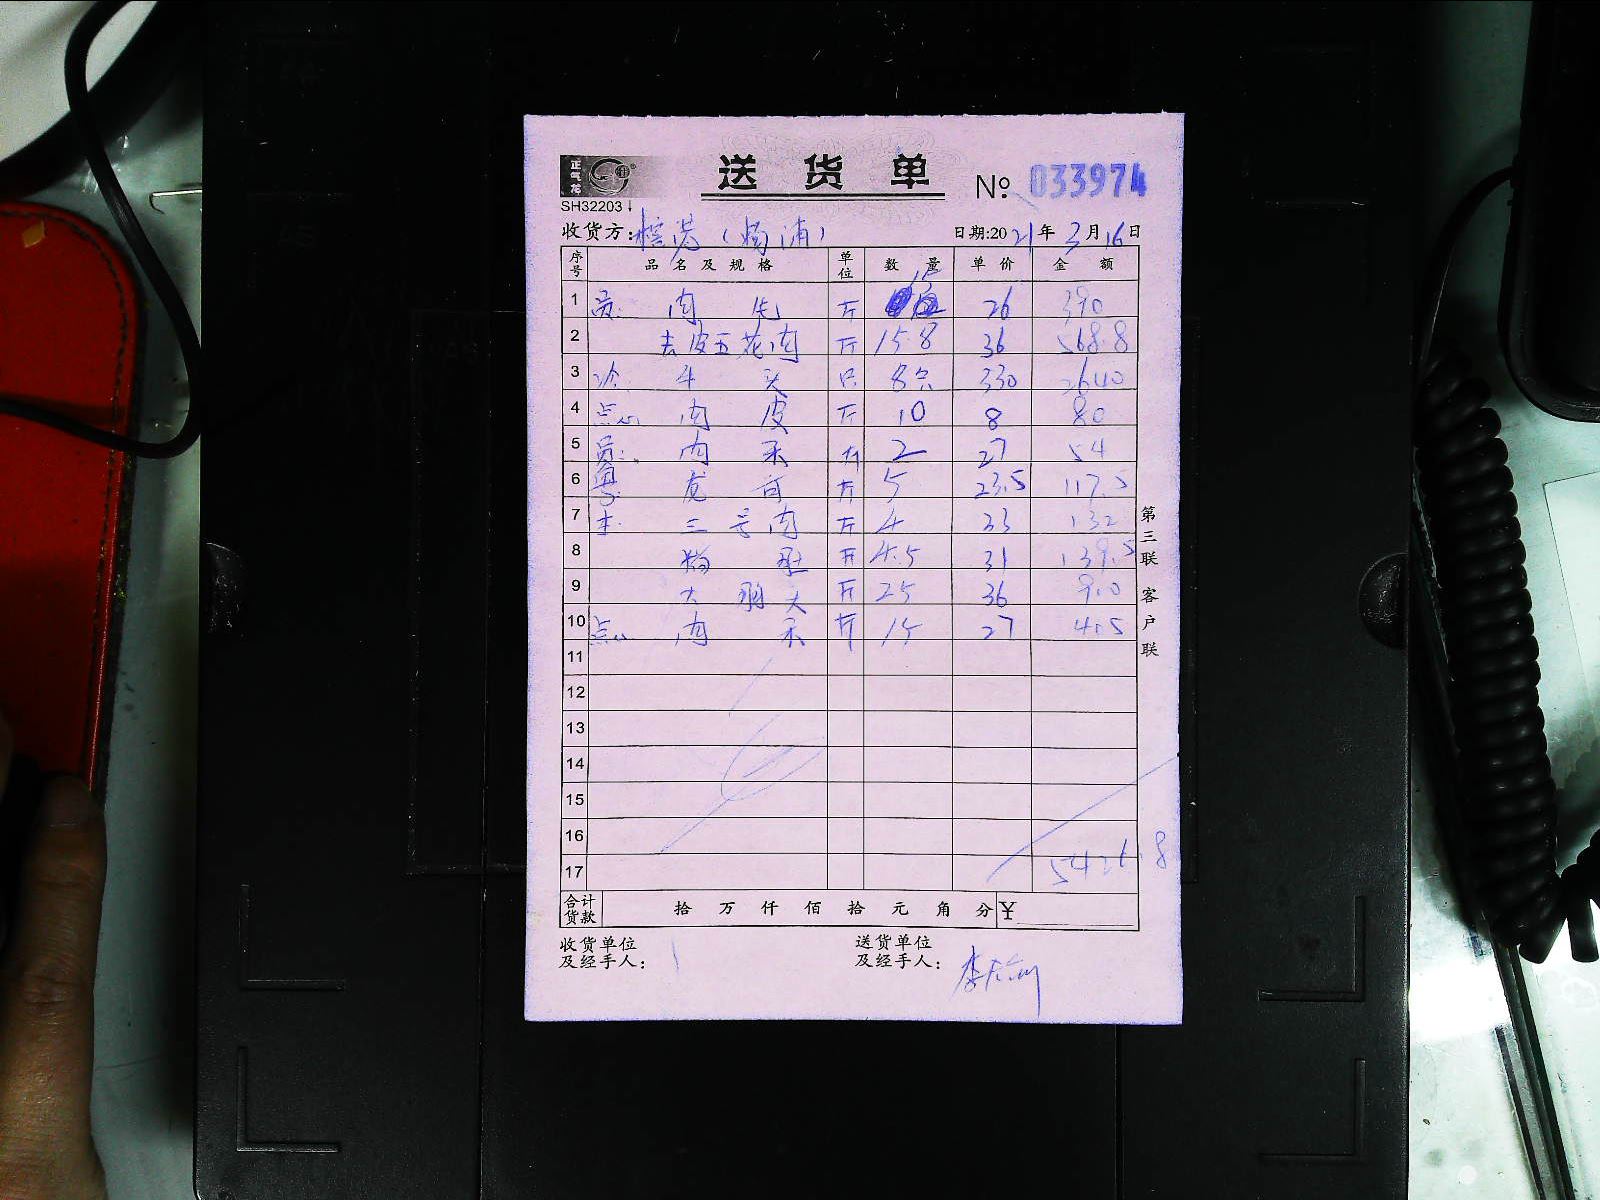 正气龙
送货单
№ 033974
SH32203
收货方: (杨浦) 日期:2021年3月16日
序号 品名及规格 单位 数量 单价 金额
1 员: 肉 斤 15 26 390
2 去皮五花肉 斤 15.8 36 568.8
3 冷 牛头 只 8只 330 2640
4 点心 肉皮 斤 10 8 80
5 员: 肉 斤 2 27 54
6 龙 斤 5 23.5 117.5
7 三号肉 斤 4 33 132
8 斤 4.5 31 139.5
9 大 斤 25 36 900
10 点心 肉 斤 15 27 405
11
12
13
14
15
16
17 5426.8
合计货款 拾 万 仟 佰 拾 元 角 分 ¥
收货单位及经手人: 送货单位及经手人: 李
第三联 客户联